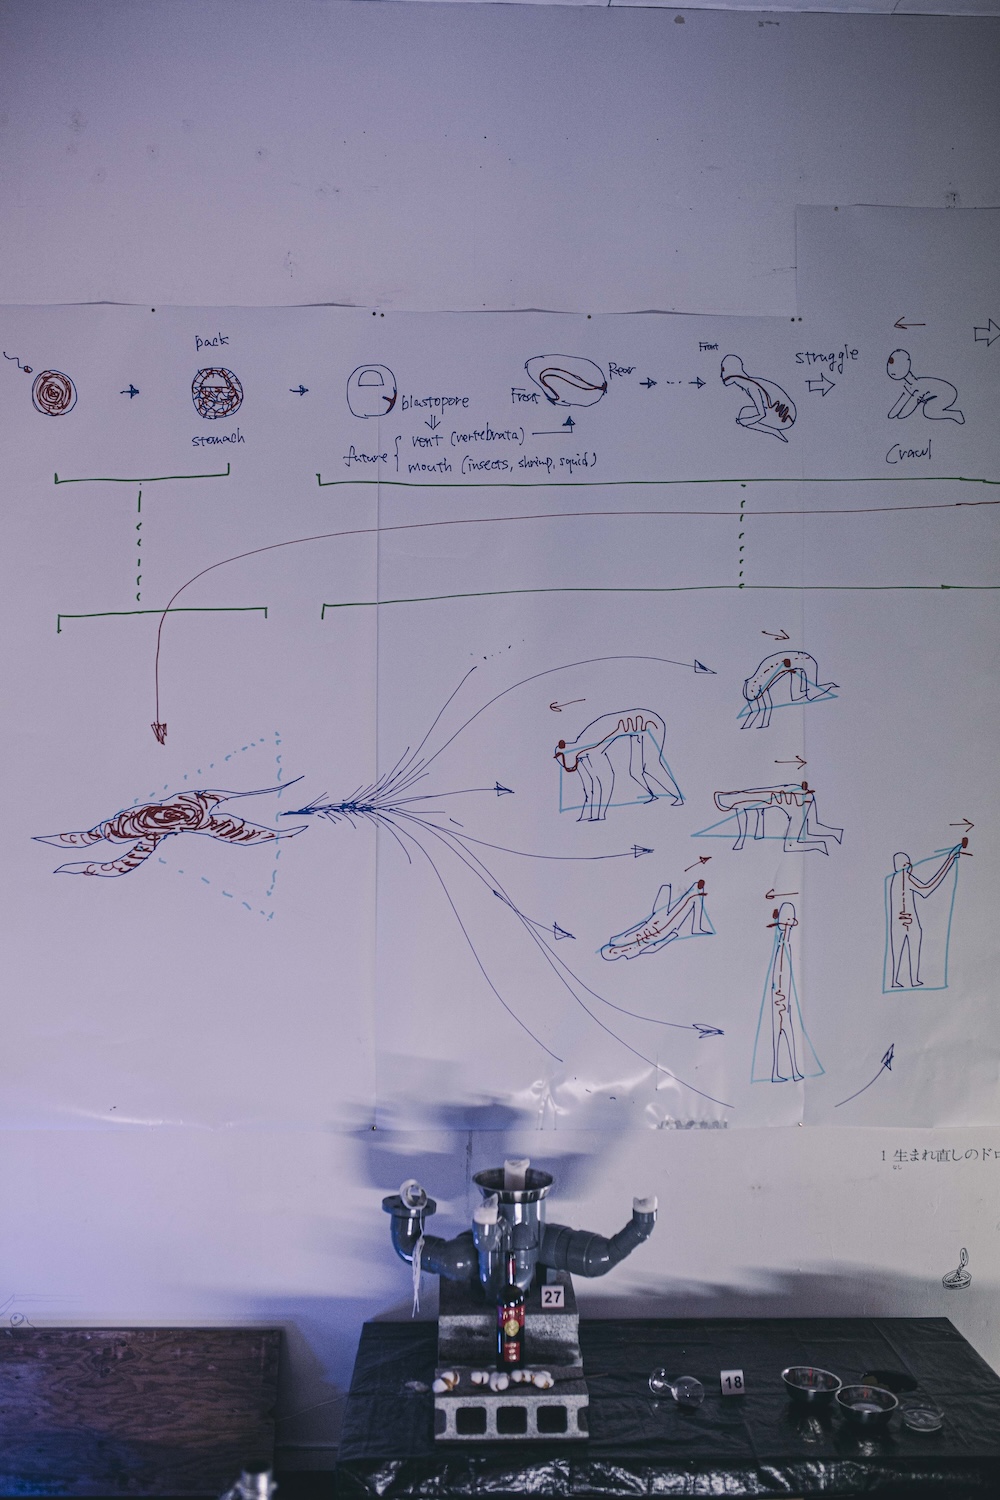 pack
stomach
blastopore
future { vent (vertebrata)
mouth (insects, shrimp, squid)
Front
Rear
Front
struggle
Crawl
1 生まれ直しのドロ
27
18